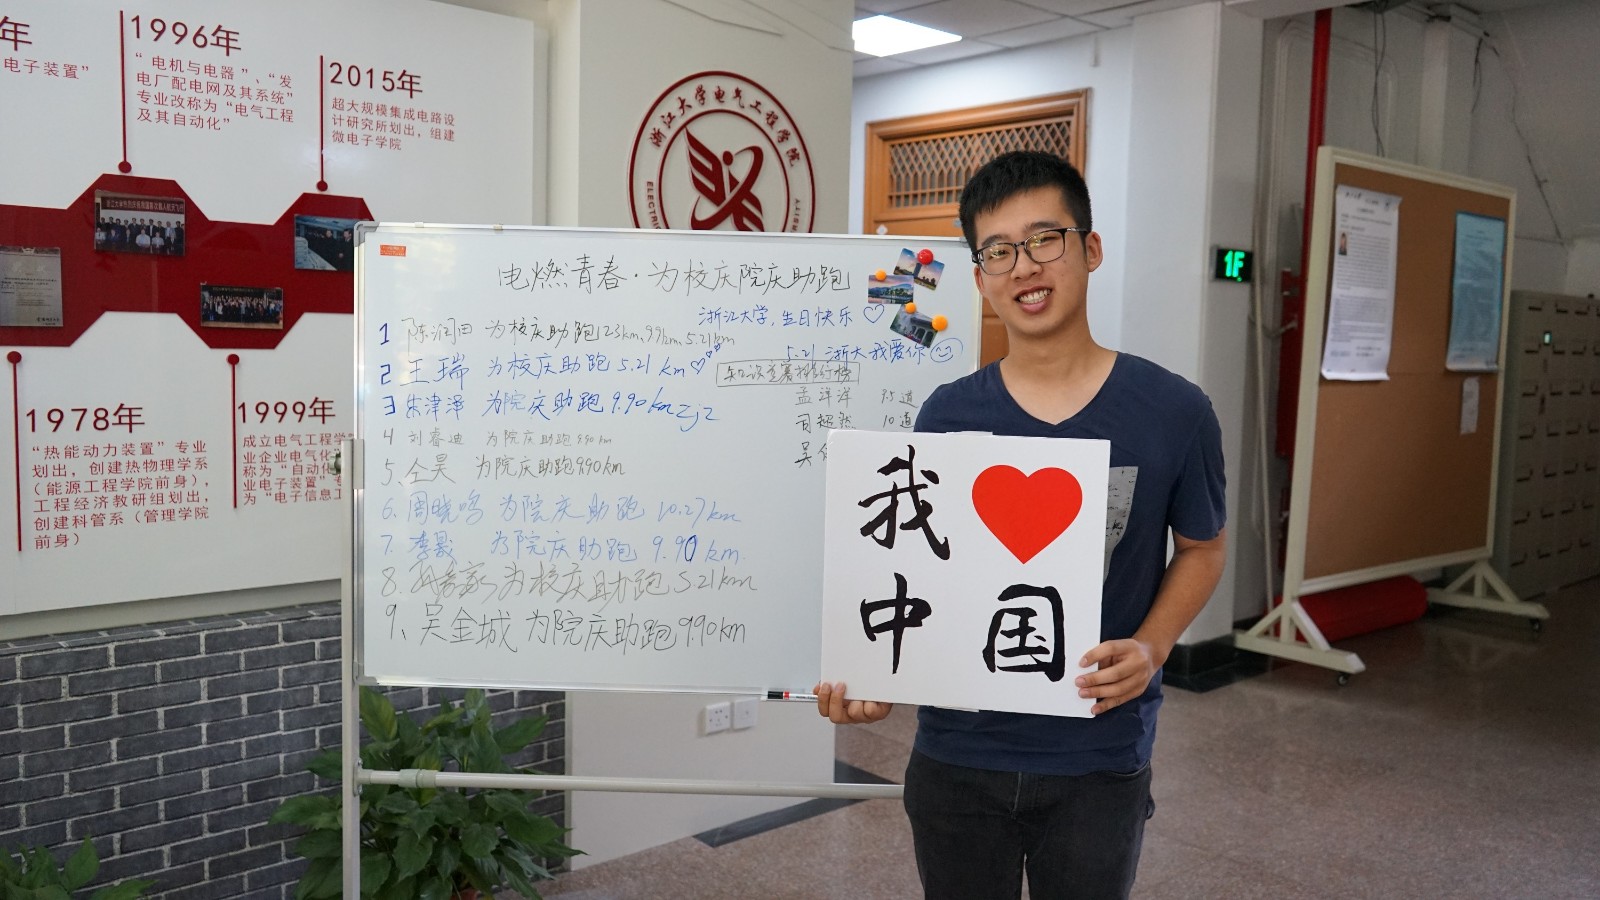 1996年
“电机与电器”、“发
电厂配电网及其系统”
专业改称为“电气工程
及其自动化”
2015年
超大规模集成电路设
计研究所划出，组建
微电子学院
年
电子装置”
1978年
“热能动力装置”专业
划出，创建热物理学系
（能源工程学院前身），
工程经济教研组划出，
创建科管系（管理学院
前身）
1999年
成立电气工程学
业企业电气化
称为“自动化
业电子装置”专
为“电子信息工
浙江大学电气工程学院
ELECTRI
电燃青春·为校庆院庆助跑
浙江大学，生日快乐♡
5.21 浙大我爱你
1 陈润田 为校庆助跑 1.23km, 9.99km, 5.21km
2 王瑞 为校庆助跑 5.21 km
3 朱津泽 为院庆助跑 9.90km zjz
4 刘睿迪 为院庆助跑 9.90 km
5、仝昊 为院庆助跑 9.90km
6. 周晓鸣 为院庆助跑 10.27km
7. 李晟 为院庆助跑 9.90 km.
8. 为校庆助跑 5.21km
9、吴金城 为院庆助跑 9.90km
知识竞赛排行榜
孟洋洋 道
司超然 10道
吴
我❤
中国
1F